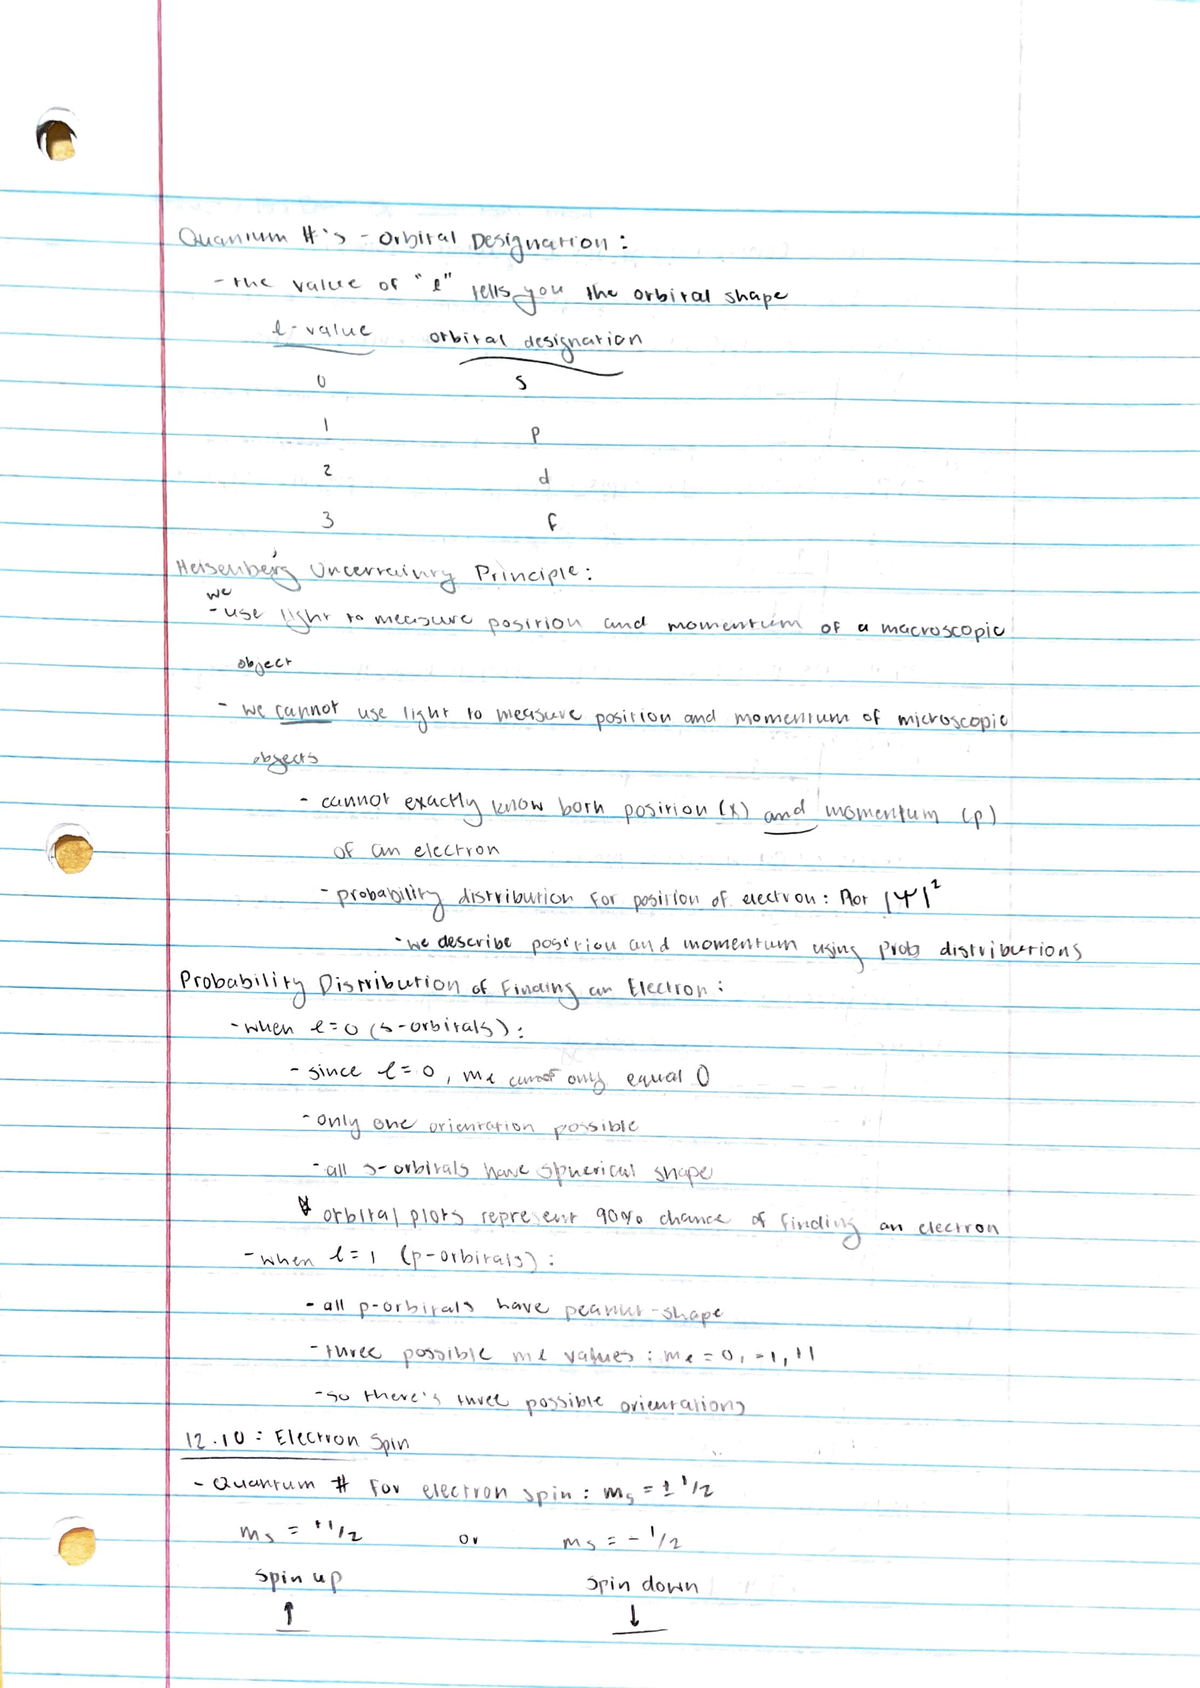 Quantum #'s - Orbital Designation:
- the value of "ℓ" tells you the orbital shape
ℓ-value orbital designation
0 s
1 p
2 d
3 f
Heisenberg Uncertainty Principle:
we
- use light to measure position and momentum of a macroscopic
object
- we cannot use light to measure position and momentum of microscopic
objects
- cannot exactly know both position (x) and momentum (p)
of an electron
- probability distribution for position of electron: Plot |Ψ|²
- we describe position and momentum using prob distributions
Probability Distribution of Finding an Electron:
- when ℓ=0 (s-orbitals):
- since ℓ=0, mℓ only equal 0
- only one orientation possible
- all s-orbitals have spherical shape
* orbital plots represent 90% chance of finding an electron
- when ℓ=1 (p-orbitals):
- all p-orbitals have peanut-shape
- three possible mℓ values: mℓ=0, -1, +1
- so there's three possible orientations
12.10: Electron Spin
- Quantum # for electron spin: ms = ± 1/2
ms = +1/2 or ms = -1/2
spin up spin down
↑ ↓